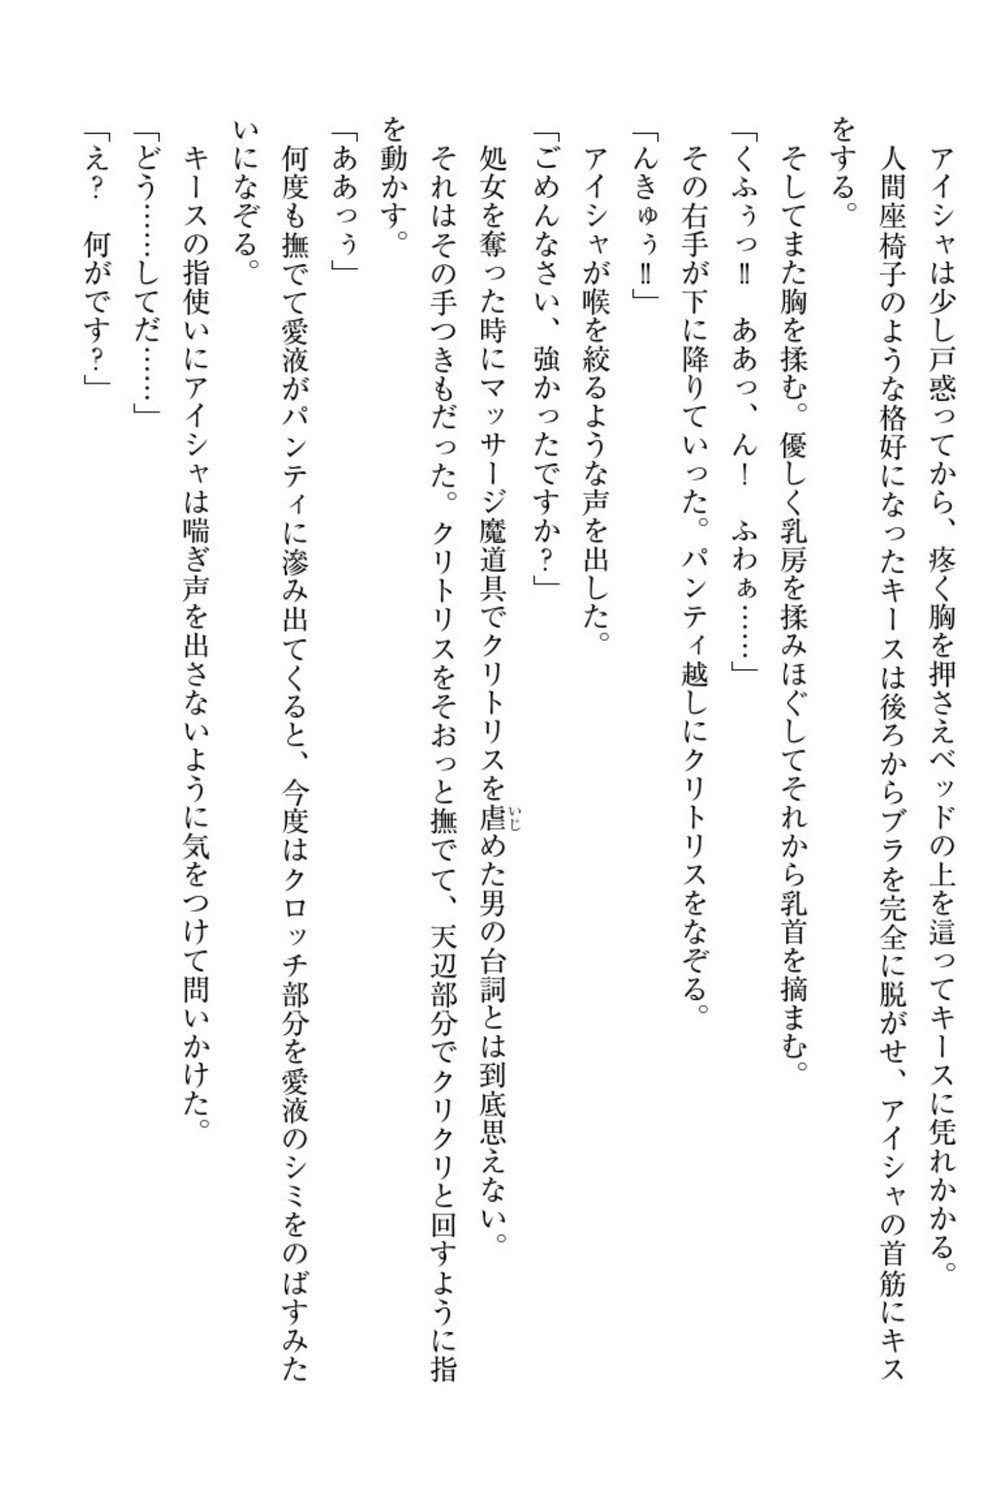 アイシャは少し戸惑ってから、疼く胸を押さえベッドの上を這ってキースに凭れかかる。
人間座椅子のような格好になったキースは後ろからブラを完全に脱がせ、アイシャの首筋にキス
をする。
そしてまた胸を揉む。優しく乳房を揉みほぐしてそれから乳首を摘まむ。
「くふぅっ‼　ああっ、ん！　ふわぁ……」
その右手が下に降りていった。パンティ越しにクリトリスをなぞる。
「んきゅぅ‼」
アイシャが喉を絞るような声を出した。
「ごめんなさい、強かったですか？」
処女を奪った時にマッサージ魔道具でクリトリスを虐いじめた男の台詞とは到底思えない。
それはその手つきもだった。クリトリスをそおっと撫でて、天辺部分でクリクリと回すように指
を動かす。
「ああっぅ」
何度も撫でて愛液がパンティに滲み出てくると、今度はクロッチ部分を愛液のシミをのばすみた
いになぞる。
キースの指使いにアイシャは喘ぎ声を出さないように気をつけて問いかけた。
「どう……してだ……」
「え？　何がです？」